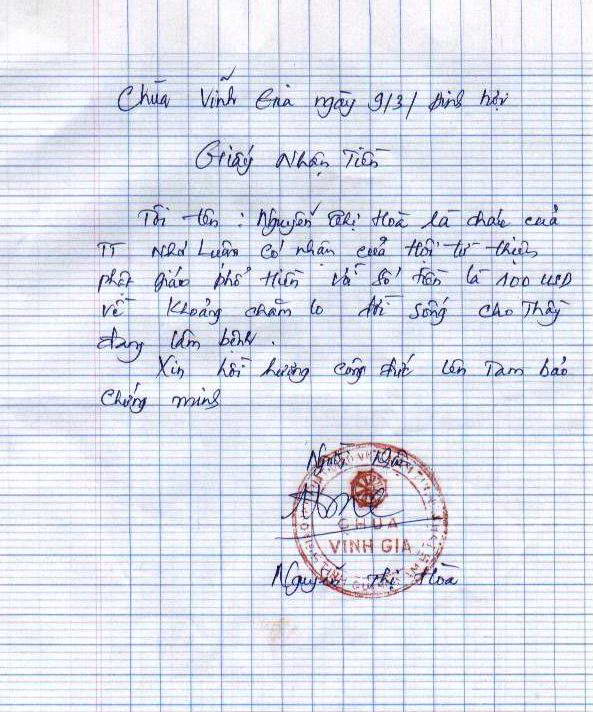 Chùa Vĩnh Gia ngày 9/3/ Đinh hợi
Giấy Nhận Tiền
Tôi tên : Nguyễn Thị Hoà là cháu của
TT Như Luận có nhận của Hội từ thiện
phật giáo phổ Hiền Với số tiền là 100 USD
về Khoảng chăm lo đời sống cho Thầy
đang lâm bệnh .
Xin hồi hướng công đức lên Tam bảo
Chứng minh
Người Nhận
CHÙA
VĨNH GIA
Nguyễn Thị Hòa